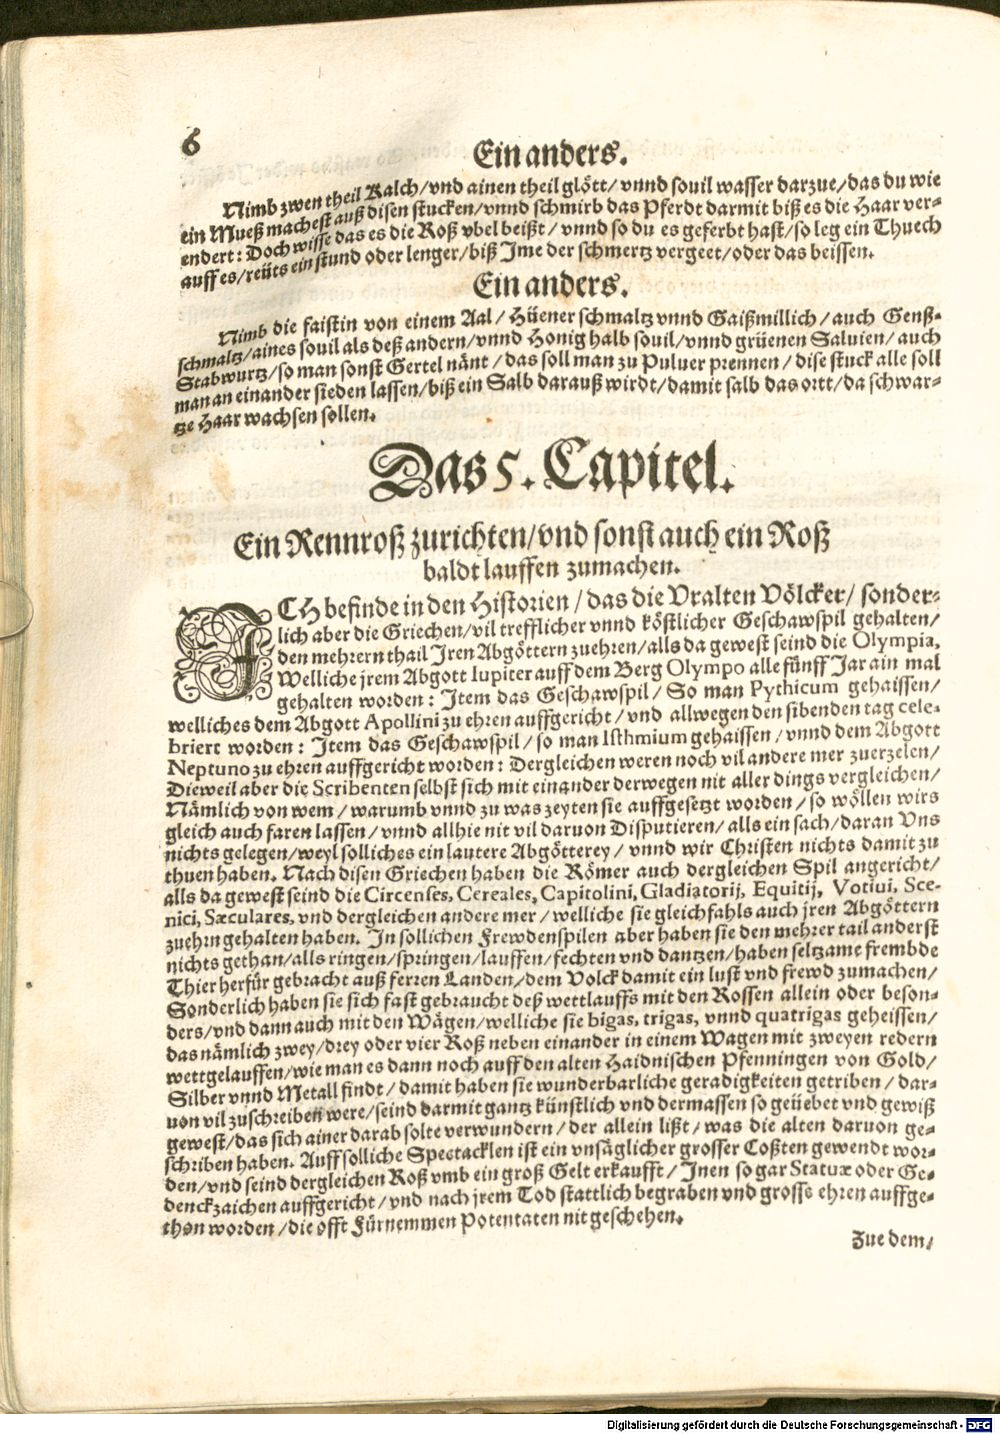 6
Ein anders.
Nimb zwen theil Kalch/vnd ainen theil glött/vnnd souil wasser darzue/das du wie
ein Mueß machest auß disen stucken/vnnd schmirb das Pferdt darmit biß es die Haar ver-
endert: Doch wisse das es die Roß vbel beißt/vnnd so du es geferbt hast/so leg ein Thuech
auff es/reüts ein stund oder lenger/biß Ime der schmertz vergeet/oder das beissen.
Ein anders.
Nimb die faistin von einem Aal/Hüener schmaltz vnnd Gaißmillich/auch Genß-
schmaltz/aines souil als deß andern/vnnd Honig halb souil/vnnd grüenen Saluien/auch
Stabwurtz/so man sonst Gertel nänt/das soll man zu Puluer prennen/dise stuck alle soll
man an einander sieden lassen/biß ein Salb darauß wirdt/damit salb das ortt/da schwar-
tze Haar wachsen sollen.
Das 5. Capitel.
Ein Rennroß zurichten/vnd sonst auch ein Roß
baldt lauffen zumachen.
ICH befinde in den Historien/das die Vralten Völcker/sonder-
lich aber die Griechen/vil trefflicher vnnd köstlicher Geschawspil gehalten/
den mehrern thail Jren Abgöttern zuehren/alls da gewest seind die Olympia,
Welliche jrem Abgott Iupiter auff dem Berg Olympo alle fünff Jar ain mal
gehalten worden: Item das Geschawspil/So man Pythicum gehaissen/
welliches dem Abgott Apollini zu ehren auffgericht/vnd allwegen den sibenden tag cele-
briert worden: Item das Geschawspil/so man Isthmium gehaissen/vnnd dem Abgott
Neptuno zu ehren auffgericht worden: Dergleichen weren noch vil andere mer zuerzelen/
Dieweil aber die Scribenten selbst sich mit einander derwegen nit aller dings vergleichen/
Nämlich von wem/warumb vnnd zu was zeyten sie auffgesetzt worden/so wöllen wirs
gleich auch faren lassen/vnnd allhie nit vil daruon Disputieren/alls ein sach/daran Vns
nichts gelegen/weyl solliches ein lautere Abgötterey/vnnd wir Christen nichts damit zu
thuen haben. Nach disen Griechen haben die Römer auch dergleichen Spil angericht/
alls da gewest seind die Circenses, Cereales, Capitolini, Gladiatorij, Equitij, Votiui, Sce-
nici, Sæculares, vnd dergleichen andere mer/welliche sie gleichfahls auch jren Abgöttern
zuehrn gehalten haben. In sollichen Frewdenspilen aber haben sie den mehrer tail anderst
nichts gethan/alls ringen/springen/lauffen/fechten vnd dantzen/haben seltzame frembde
Thier herfür gebracht auß ferren Landen/dem Volck damit ein lust vnd frewd zumachen/
Sonderlich haben sie sich fast gebraucht deß wettlauffs mit den Rossen allein oder beson-
ders/vnd dann auch mit den Wägen/welliche sie bigas, trigas, vnnd quatrigas geheissen/
das nämlich zwey/drey oder vier Roß neben einander in einem Wagen mit zweyen redern
wettgelauffen/wie man es dann noch auff den alten Haidnischen Pfenningen von Gold/
Silber vnnd Metall findt/damit haben sie wunderbarliche geradigkeiten getriben/dar-
uon vil zuschreiben were/seind darmit gantz künstlich vnd dermassen so geüebet vnd gewiß
gewest/das sich ainer darab solte verwundern/der allein lißt/was die alten daruon ge-
schriben haben. Auff solliche Spectacklen ist ein vnsäglicher grosser Coßten gewendt wor-
den/vnd seind dergleichen Roß vmb ein groß Gelt erkaufft/Inen so gar Statuæ oder Ge-
denckzaichen auffgericht/vnd nach jrem Tod stattlich begraben vnd grosse ehren auffge-
thon worden/die offt Fürnemmen Potentaten nit geschehen.
Zue dem/
Digitalisierung gefördert durch die Deutsche Forschungsgemeinschaft - DFG